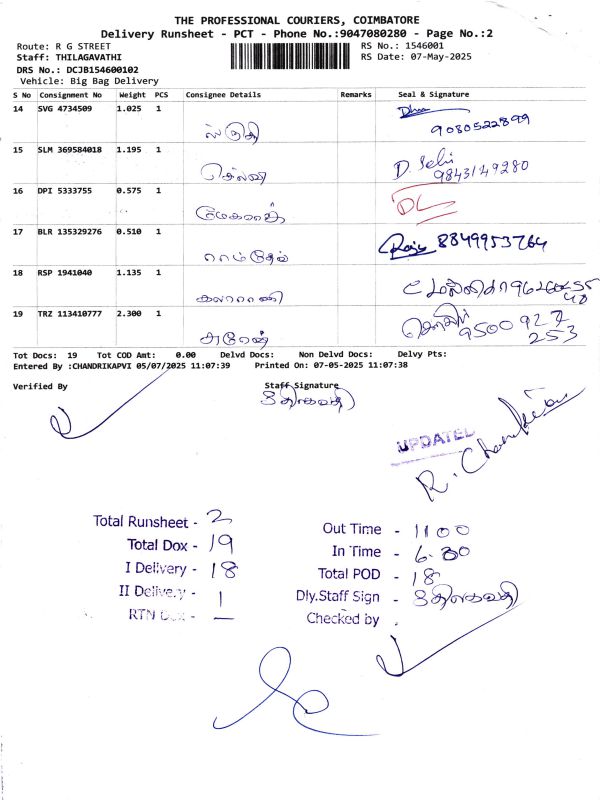 THE PROFESSIONAL COURIERS, COIMBATORE
Delivery Runsheet - PCT - Phone No.:9047080280 - Page No.:2
Route: R G STREET
RS No.: 1546001
Staff: THILAGAVATHI
RS Date: 07-May-2025
DRS No.: DCJB154600102
Vehicle: Big Bag Delivery
S No Consignment No Weight PCS Consignee Details Remarks Seal & Signature
14 SVG 4734509 1.025 1
9080522899
15 SLM 369584018 1.195 1 செல்வி D. Selvi
9843149280
16 DPI 5333755 0.575 1 DL
17 BLR 135329276 0.510 1 Raju 8849953764
18 RSP 1941040 1.135 1 கலாராணி
19 TRZ 113410777 2.300 1 சுரேஷ் 9500 927
253
Tot Docs: 19 Tot COD Amt: 0.00 Delvd Docs: Non Delvd Docs: Delvy Pts:
Entered By :CHANDRIKAPVI 05/07/2025 11:07:39 Printed On: 07-05-2025 11:07:38
Verified By Staff Signature
திலகவதி
UPDATED
Total Runsheet - 2
Total Dox - 19
I Delivery - 18
II Delivery - 1
RTN Dox - —
Out Time - 1100
In Time - 6.30
Total POD - 18
Dly.Staff Sign - திலகவதி
Checked by .